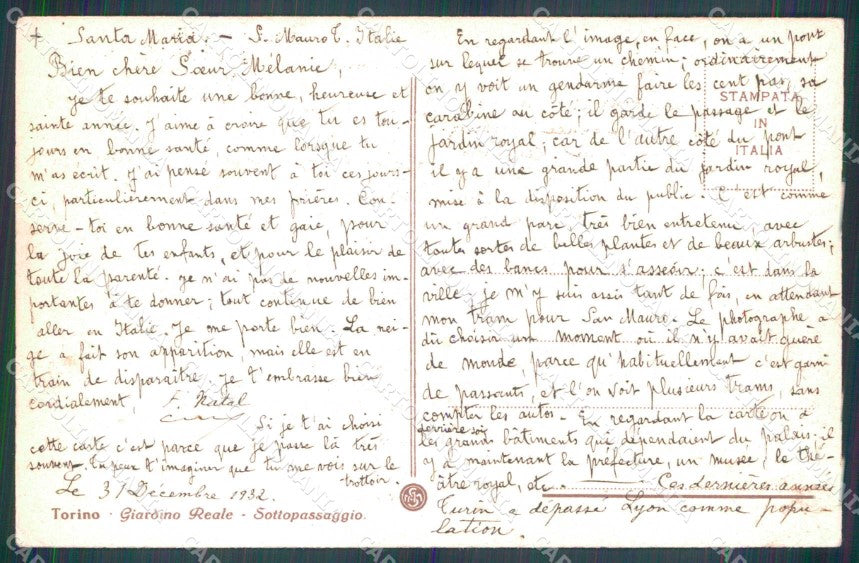 + Santa Maria. - S. Mauro T. Italie
Bien chère Sœur Mélanie,
je te souhaite une bonne, heureuse et
sainte année. J'aime à croire que tu es tou-
jours en bonne santé, comme lorsque tu
m'as écrit. J'ai pensé souvent à toi ces jours-
ci, particulièrement dans mes prières. Con-
serve-toi en bonne santé et gaie, pour
la joie de tes enfants, et pour le plaisir de
toute la parenté. Je n'ai pas de nouvelles im-
portantes à te donner; tout continue de bien
aller en Italie. Je me porte bien. La nei-
ge a fait son apparition, mais elle est en
train de disparaître. Je t'embrasse bien
cordialement, F. Natal
Si je t'ai choisi
cette carte c'est parce que je passe là très
souvent. Tu peux t'imaginer que tu me vois sur le
trottoir.
Le 31 Décembre 1932.
Torino - Giardino Reale - Sottopassaggio.
En regardant l'image, en face, on a un pont
sur lequel se trouve un chemin; ordinairement
on y voit un gendarme faire les cent pas, sa
carabine au côté; il garde le passage et le
jardin royal; car de l'autre côté du pont
il y a une grande partie du jardin royal,
mise à la disposition du public. C'est comme
un grand parc, très bien entretenu, avec
toutes sortes de belles plantes et de beaux arbustes;
avec des bancs pour s'asseoir; c'est dans la
ville. Je m'y suis assis tant de fois, en attendant
mon tram pour San Mauro. Le photographe a
dû choisir un moment où il n'y avait guère
de monde, parce qu'habituellement c'est garni
de passants, et l'on voit plusieurs trams, sans
compter les autos. En regardant la carte on a
derrière soi
les grands bâtiments qui dépendaient du palais; il
y a maintenant la préfecture, un musée, le thé-
âtre royal, etc. Ces dernières années
Turin a dépassé Lyon comme popu-
lation.
STAMPATA
IN
ITALIA
CARTOLINIA